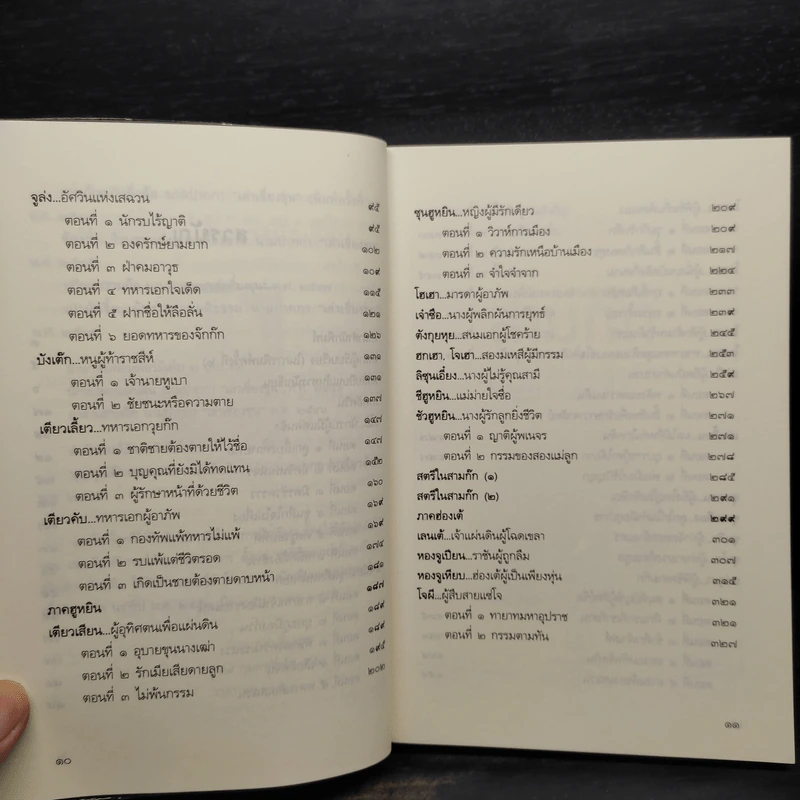 จูล่ง...อัศวินแห่งเสฉวน ๙๕
ตอนที่ ๑ นักรบไร้ญาติ ๙๕
ตอนที่ ๒ องครักษ์ยามยาก ๑๐๒
ตอนที่ ๓ ฝ่าคมอาวุธ ๑๐๙
ตอนที่ ๔ ทหารเอกใจเด็ด ๑๑๕
ตอนที่ ๕ ฝากชื่อให้ลือลั่น ๑๒๑
ตอนที่ ๖ ยอดทหารของจ๊กก๊ก ๑๒๖
บังเต๊ก...หนูผู้ท้าราชสีห์ ๑๓๑
ตอนที่ ๑ เจ้านายหูเบา ๑๓๑
ตอนที่ ๒ ชัยชนะหรือความตาย ๑๓๗
เตียวเลี้ยว...ทหารเอกวุยก๊ก ๑๔๗
ตอนที่ ๑ ชาติชายต้องตายให้ไว้ชื่อ ๑๔๗
ตอนที่ ๒ บุญคุณที่ยังมิได้ทดแทน ๑๕๒
ตอนที่ ๓ ผู้รักษาหน้าที่ด้วยชีวิต ๑๖๐
เตียวคับ...ทหารเอกผู้อาภัพ ๑๖๙
ตอนที่ ๑ กองทัพแพ้ทหารไม่แพ้ ๑๖๙
ตอนที่ ๒ รบแพ้แต่ชีวิตรอด ๑๗๔
ตอนที่ ๓ เกิดเป็นชายต้องตายดาบหน้า ๑๘๑
ภาคฮูหยิน ๑๘๗
เตียวเสียน...ผู้อุทิศตนเพื่อแผ่นดิน ๑๘๙
ตอนที่ ๑ อุบายขุนนางเฒ่า ๑๘๙
ตอนที่ ๒ รักเมียเสียดายลูก ๑๙๕
ตอนที่ ๓ ไม่พ้นกรรม ๒๐๒
๑๐
ซุนฮูหยิน...หญิงผู้มีรักเดียว ๒๐๙
ตอนที่ ๑ วิวาห์การเมือง ๒๐๙
ตอนที่ ๒ ความรักเหนือบ้านเมือง ๒๑๗
ตอนที่ ๓ จำใจจำจาก ๒๒๔
โฮเฮา...มารดาผู้อาภัพ ๒๓๓
เจ๋าซือ...นางผู้พลิกผันการยุทธ์ ๒๓๙
ตังกุยหุย...สนมเอกผู้โชคร้าย ๒๔๕
ฮกเฮา, โจเฮา...สองมเหสีผู้มีกรรม ๒๕๓
ลิซุนเอี๋ยง...นางผู้ไม่รู้คุณสามี ๒๕๙
ชีฮูหยิน...แม่ม่ายใจซื่อ ๒๖๗
ชัวฮูหยิน...นางผู้รักลูกยิ่งชีวิต ๒๗๑
ตอนที่ ๑ ญาติผู้พเนจร ๒๗๑
ตอนที่ ๒ กรรมของสองแม่ลูก ๒๗๘
สตรีในสามก๊ก (๑) ๒๘๕
สตรีในสามก๊ก (๒) ๒๙๑
ภาคฮ่องเต้ ๒๙๙
เลนเต้...เจ้าแผ่นดินผู้โฉดเขลา ๓๐๑
หองจูเปียน...ราชันผู้ถูกลืม ๓๐๗
หองจูเหียบ...ฮ่องเต้ผู้เป็นเพียงหุ่น ๓๑๕
โจผี...ผู้สืบสายแซ่โจ ๓๒๑
ตอนที่ ๑ ทายาทมหาอุปราช ๓๒๑
ตอนที่ ๒ กรรมตามทัน ๓๒๗
๑๑